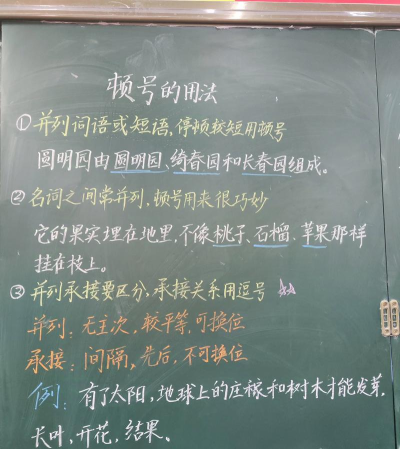 顿号的用法
①并列词语或短语,停顿较短用顿号
圆明园由圆明园、绮春园和长春园组成。
②名词之间常并列,顿号用来很巧妙
它的果实埋在地里,不像桃子、石榴、苹果那样
挂在枝上。
③并列承接要区分、承接关系用逗号
并列:无主次,较平等,可换位
承接:间隔,先后,不可换位
例:有了太阳,地球上的庄稼和树木才能发芽,
长叶,开花,结果。